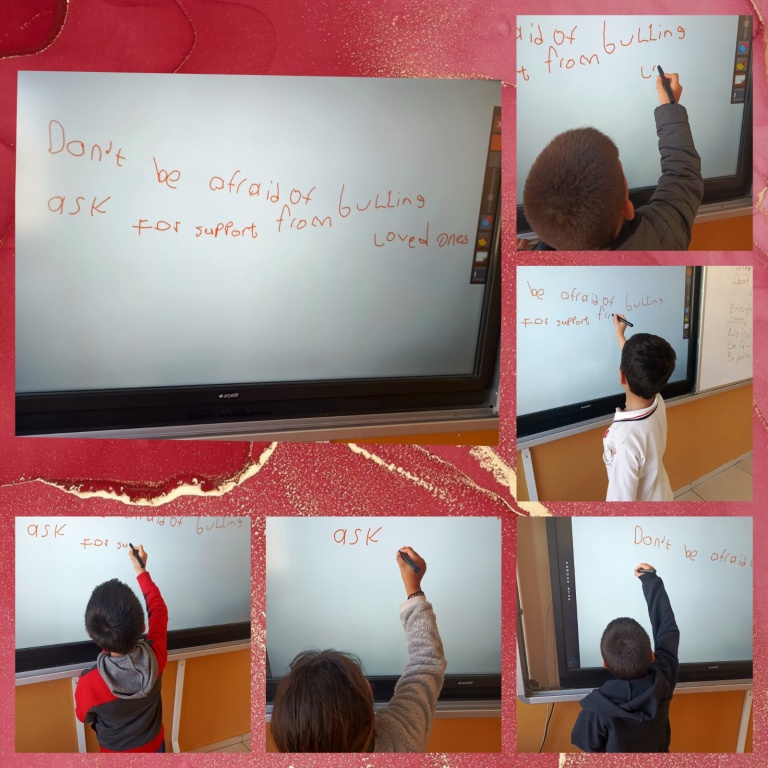 Don't be afraid of bulling
ask For support from Loved ones
aid of bulling
t from
be afraid of bulling
For support fr
ask
of bulling
For su
ask
Don't be afraid